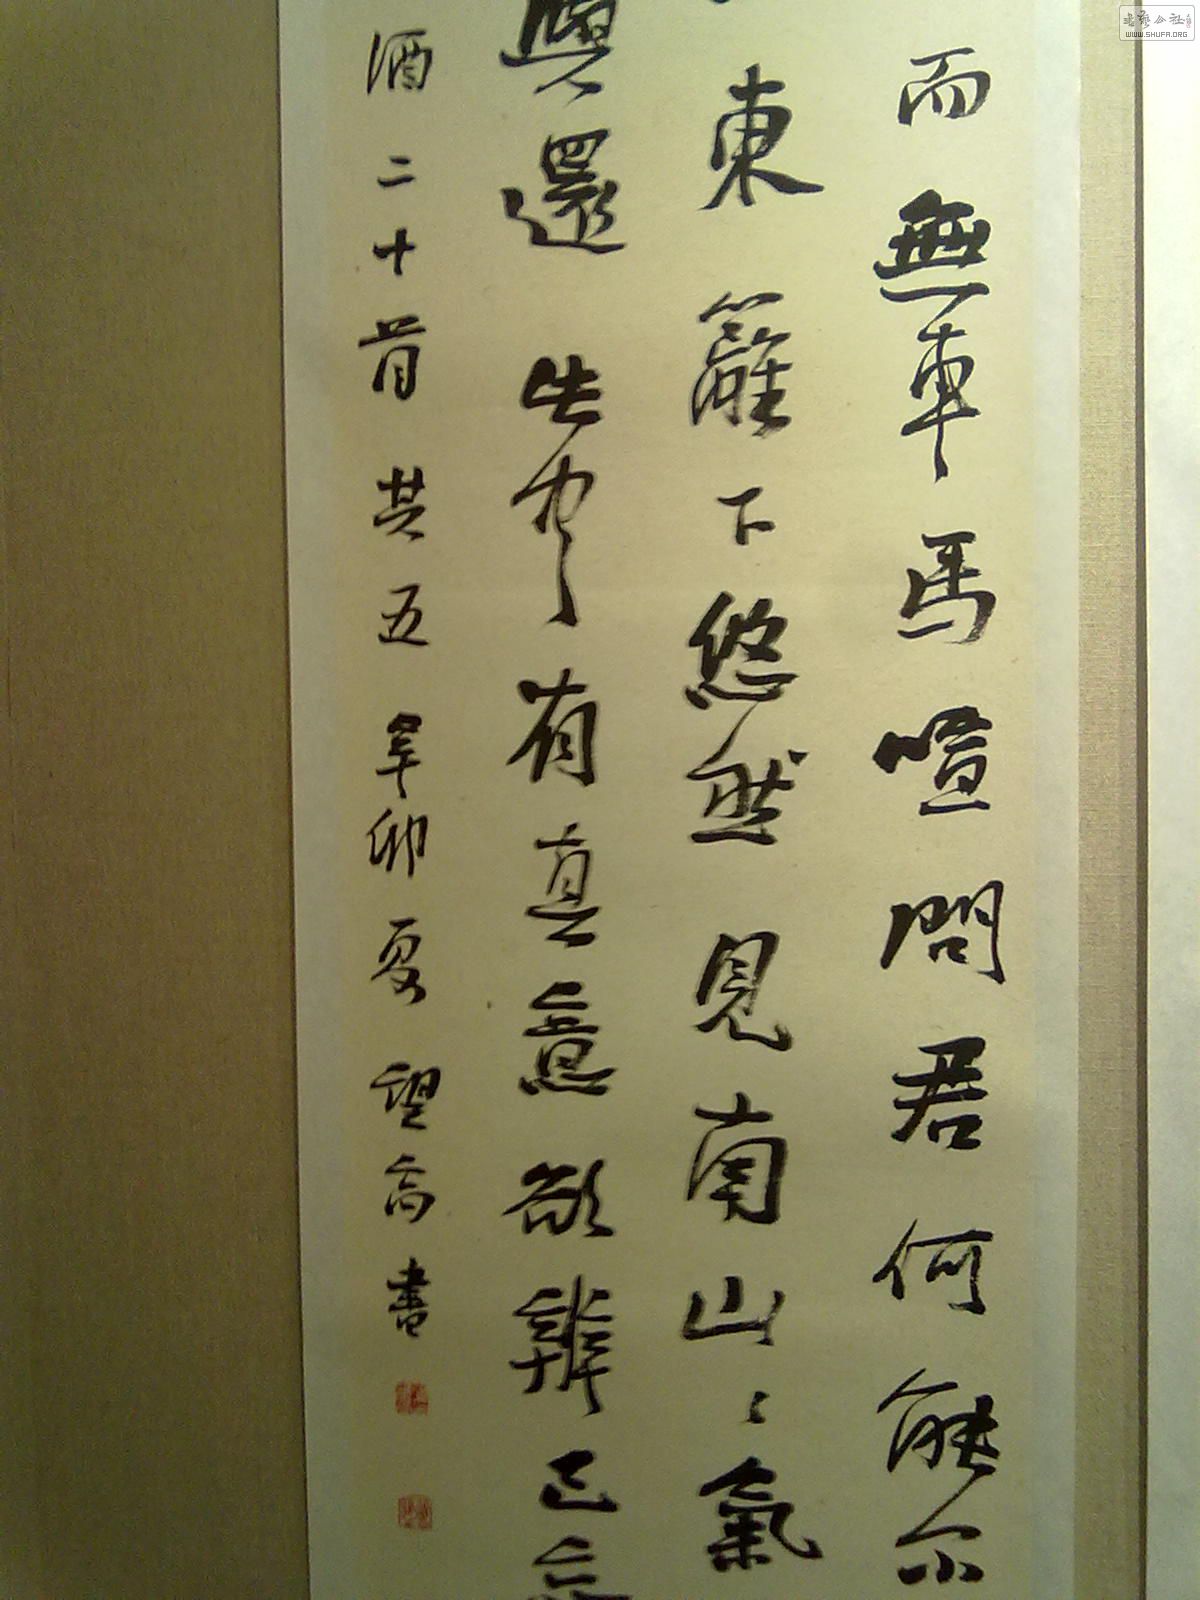 而無車馬喧問君何能尔
東籬下悠然見南山〻氣
與還此中有真意欲辨已忘
酒二十首其五辛卯夏望高書
書藝公社
WWW.SHUFA.ORG